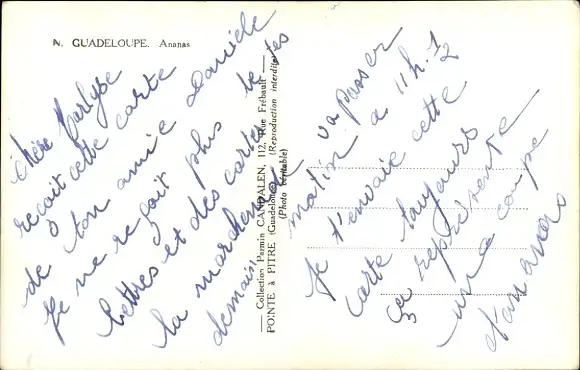 N. GUADELOUPE. Ananas
Chère Marlyse
reçoit cette carte
de ton amie Danièle
Je ne reçoit plus de tes
lettres et des cartes
la marchande
demain
va passer
matin a 11h.1/2
Je t'envoie cette
carte toujours
ça représente
une coupe
d'ananas
— Collection Parmin CANDALEN, 112, Rue Frébault —
POINTE à PITRE (Guadeloupe) (Reproduction interdite)
(Photo véritable)